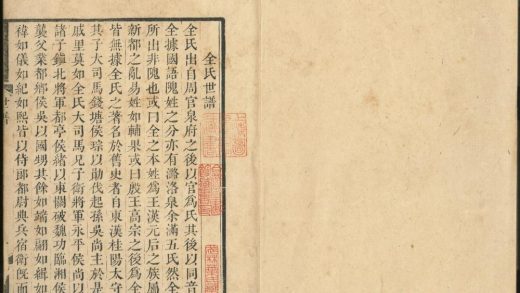 全氏世譜
全氏出自周官泉府之後以官爲氏其後以同音
全據國語隗姓之分亦有潞洛泉余滿五氏然全
所出非隗也或曰全之本姓爲王漢元后之族屬
新都之亂易姓如輔果或曰殷王高宗之後爲全
皆無據全氏之著名於舊史者自東漢桂陽太守
其子大司馬錢塘侯琮以勛伐起孫吳尚主於是
戚里莫如全氏大司馬兄子衛將軍永平侯尚以
諸子鎮北將軍都亭侯緒以東關破魏功臨湘侯
襲父業都鄉侯吳以國甥其餘如端如翩如緝如
禕如儀如紀如熙皆以侍郎都尉典兵宿衛既而
世譜